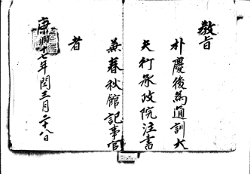 敎旨
朴慶後為通訓大
夫行承政院注書
兼春秋館記事官
者
康熙十七年閏三月二十八日